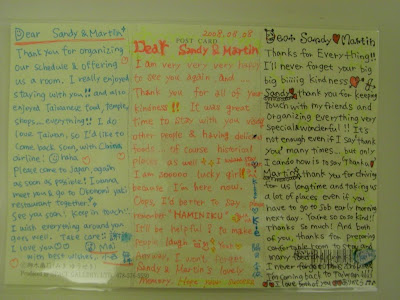 Dear Sandy & Martin
Thank you for organizing
our schedule & offering
us a room. I really enjoyed
staying with you!! and also
enjoyed Taiwanese food, people,
shops... everything!! I do
love Taiwan, so I'd like to
come back soon, with China
airline!
Please come to Japan, again
as soon as possible! I wanna
meet you & go to Okonomi yaki
restaurant together.
See you soon! Keep in touch!!
I wish everything around you
goes well. Take care!!
I love you
with best wishes,
2008.05.08
POST CARD
Dear Sandy & Martin
I am very very very happy
to see you again, and....
Thank you for all of your
kindness!! It was great
time to stay with you with
other people & having delicious
foods, of course historical
places as well
I am sooooo lucky girl
because I'm here now.
Oops, I'd better to say
remember "HAMINIKU"
It'll be helpful to make
people laugh
nervous, I won't forget
Sandy & Martin's lovely
memory. Hope your success
Dear Sandy Martin
Thanks for Everything!!
I'll never forget your big
big biiiiig kindness
Sandy thank you for keeping
Touch with my friends and
Organizing Everything very
Special & wonderful!! It's
not enough even if I say "thank
You" many times... but only
I can do now is to say "thanks"
Martin thank you for driving
for us longtime and taking us
a lot of places even if you
have to go to work early
next day. You're so so so kind!!
Thanks so much! And both
of you, thanks for preparing
comfortable room
I never forget
Coming back to Taiwan